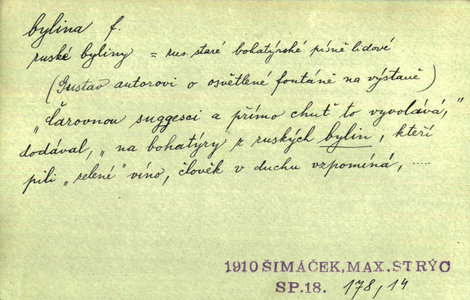 bylina f.
ruské byliny = rus. staré bohatýrské písně lidové
(Gustav autorovi o osvětlené fontáně na výstavě)
„Čarovnou suggesci a přímo chuť to vyvolává,"
dodával, „na bohatýry z ruských bylin, kteří
pili „zelené" víno, člověk v duchu vzpomíná, .....
1910 ŠIMÁČEK, MAX. STRÝC
SP. 18. 178, 14